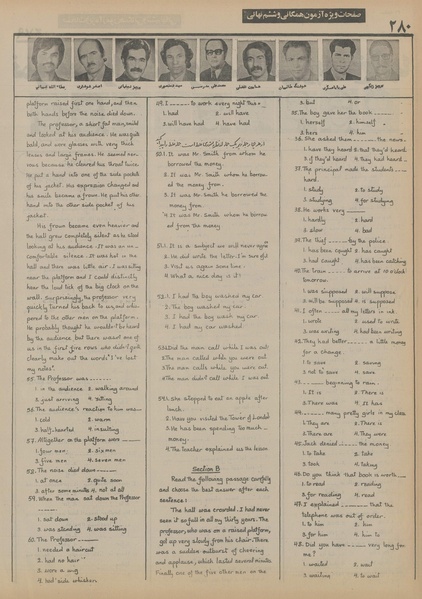 صفحات ویژه آزمون همگانی و ششم نهائی
۲۸۰
platform raised first one hand, and then
both hands before the noise died down.
The professor, a short fat man, smiled
and looked at his audience. He was quite
bald, and wore glasses with very thick
lenses and large frames. He seemed ner-
vous because he cleared his throat twice.
He put a hand into one of the side pockets
of his jacket. His expression changed and
his smile became a frown. He put his other
hand into the other side pocket of his
jacket.
His frown became even heavier and
the hall grew completely silent as he stood
looking at his audience. It was an un-
comfortable silence. It was hot in the
hall and there was little air. I was sitting
near the platform and I could distinctly
hear the loud tick of the big clock on the
wall. Surprisingly, the professor very
quickly turned his back to us, and whis-
pered to the other men on the platform.
He probably thought he wouldn't be heard
by the audience but there wasn't one of
us in the first five rows who didn't quite
clearly make out the words "I've lost
my notes".
55. The Professor was
1. in the audience 2. walking around
3. just arriving 4. sitting
56. The audience's reaction to him was
1. cold 2. warm
3. half-hearted 4. insulting
57. Altogether on the platform were
1. four men 2. six men
3. five men 4. seven men
58. The noise died down
1. at once 2. quite soon
3. after some minutes 4. not at all
59. When the man sat down the Professor
1. sat down 2. stood up
3. was standing 4. was sitting
60. The Professor
1. needed a haircut
2. had no hair
3. wore a wig
4. had side whiskers
49. I to work every night this
1. had 2. will have
3. will have had 4. have had
50. 1. It was Mr. Smith from whom he
borrowed the money.
2. It was Mr. Smith whom he borrow-
ed the money from.
3. It was Mr. Smith he borrowed the
money from.
4. It was Mr. Smith whom he borrow-
ed from the money
51. 1. It is a subject we will never agree
2. He did write the letter. I'm sure of it
3. Visit us again some time.
4. What a nice day is it?
52. 1. I had the boy washed my car
2. The boy washed my car.
3. I had the boy wash my car.
4. I had my car washed
53. 1. Did the man call while I was out
2. The man called while you were out
3. The man calls while you were out
4. The man didn't call while I was out
54. 1. She stepped to eat an apple after
back.
2. Have you visited the Tower of London
3. He has been spending too much
money.
4. The teacher explained us the lesson
Section B
Read the following passage carefully
and choose the best answer after each
sentence:
The hall was crowded. I had never
seen it so full in all my thirty years. The
professor, who was on a raised platform,
got up very slowly from his chair. There
was a sudden outburst of cheering
and applause, which lasted several minutes.
Finally, one of the five other men on the
3. but 4. or
35. The boy gave her the book
1. herself 2. himself
3. here 4. him
36. She asked them the news.
1. have they heard 2. that they'd heard
3. if they'd heard 4. they had heard
37. The principal made the students
hard.
1. study 2. to study
3. studying 4. for studying
38. He works very
1. hardly 2. hard
3. slow 4. bad
39. The thief by the police
1. has been caught 2. has caught
3. had caught 4. has been catching
40. The train to arrive at 10 o'clock
tomorrow.
1. was supposed 2. will suppose
3. will be supposed 4. is supposed
41. I often all my letters in ink
1. wrote 2. used to write
3. was writing 4. had been writing
42. They had better a little money
for a change.
1. to save 2. saving
3. not to save 4. save
43. beginning to rain.
1. It is 2. There is
3. There was 4. It has
44. many pretty girls in my class
1. They are 2. There is
3. There are 4. They were
45. Jack denied the money
1. to take 2. take
3. took 4. taking
46. Do you think that book is worth
1. to read 2. reading
3. for reading 4. read
47. I explained that the
telephone was out of order.
1. to him 2. him
3. for him 4. his
48. Did you have very long for
me?
1. waited 2. wait
3. waiting 4. to wait